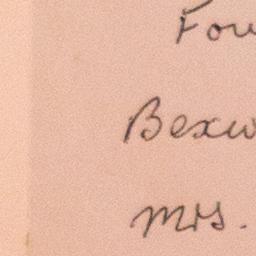 Fow
Bexw
Mrs.